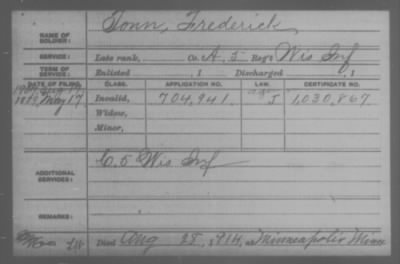 NAME OF SOLDIER: Tonn, Frederick
SERVICE: Late rank, Co. A, 5 Reg't Wis Inf
TERM OF SERVICE: Enlisted , 1 Discharged , 1
DATE OF FILING. CLASS. APPLICATION NO. LAW. CERTIFICATE NO.
1889 May 17 Invalid, 704,941. J 1,030,867
Widow,
Minor,
ADDITIONAL SERVICES: C. 5 Wis Inf
REMARKS:
Died Aug 25, 1914, at Minneapolis Minn